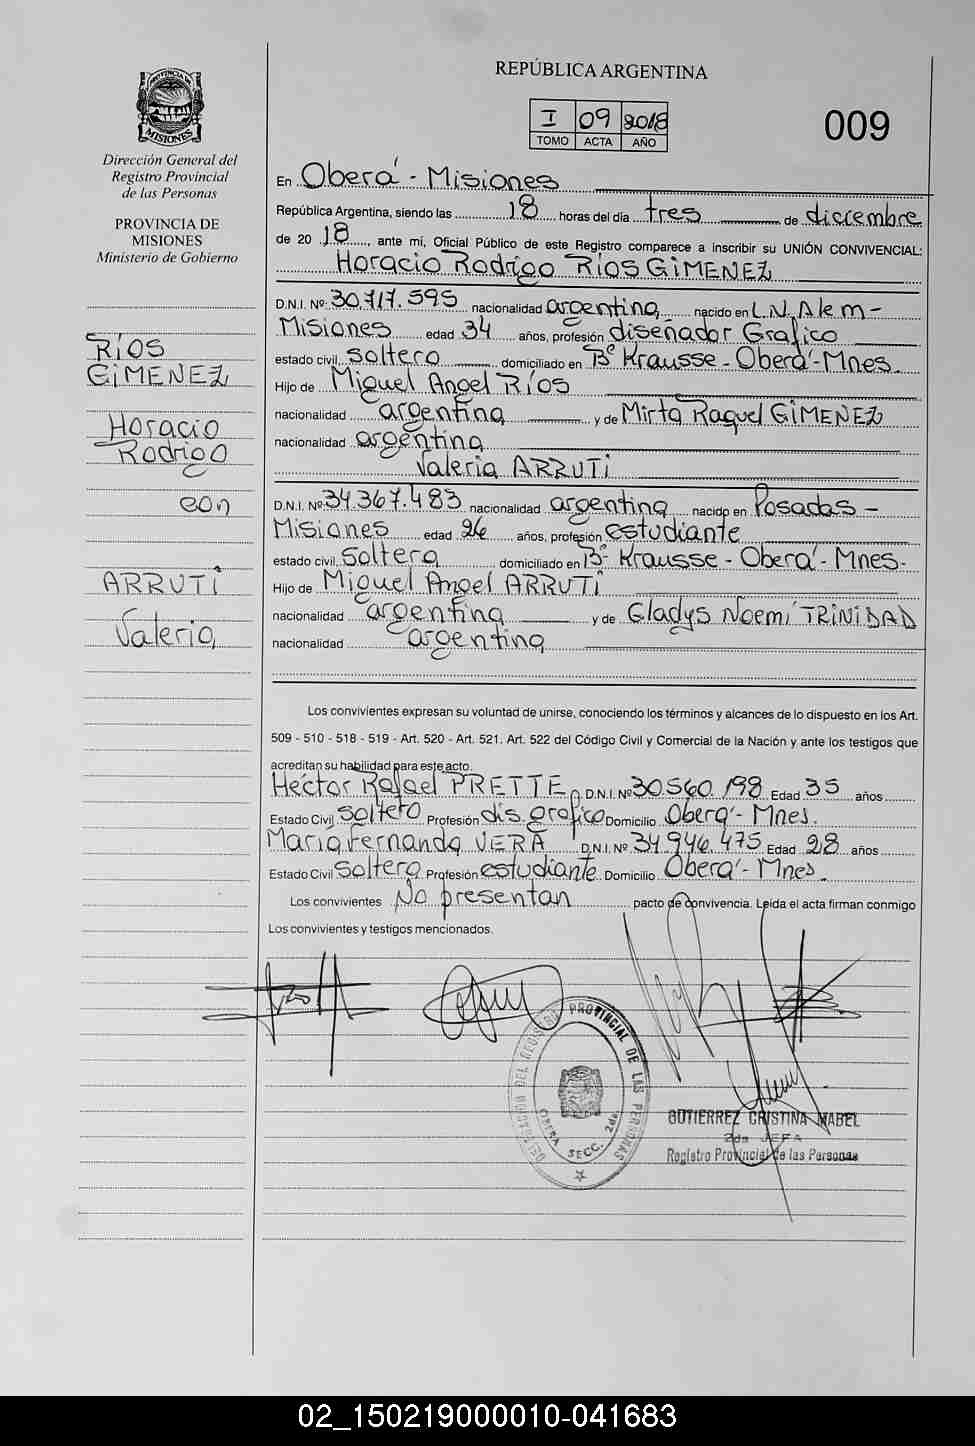 REPÚBLICA ARGENTINA
PROVINCIA DE
MISIONES
I 09 2018
TOMO ACTA AÑO
009
Dirección General del
Registro Provincial
de las Personas
PROVINCIA DE
MISIONES
Ministerio de Gobierno
RÍOS
GIMENEZ
Horacio
Rodrigo
con
ARRUTI
Valeria
En Oberá - Misiones
República Argentina, siendo las 18 horas del día tres de diciembre
de 20 18, ante mí, Oficial Público de este Registro comparece a inscribir su UNIÓN CONVIVENCIAL:
Horacio Rodrigo RÍOS GIMENEZ
D.N.I. Nº 30.717.595 nacionalidad argentina nacido en L.N. Alem -
Misiones edad 34 años, profesión diseñador Grafico
estado civil soltero domiciliado en Bº Krausse - Oberá - Mnes.
Hijo de Miguel Angel RÍOS
nacionalidad argentina y de Mirta Raquel GIMENEZ
nacionalidad argentina
Valeria ARRUTI
D.N.I. Nº 34.367.483 nacionalidad argentina nacido en Posadas -
Misiones edad 26 años, profesión estudiante
estado civil soltera domiciliado en Bº Krausse - Oberá - Mnes.
Hijo de Miguel Angel ARRUTI
nacionalidad argentina y de Gladys Noemí TRINIDAD
nacionalidad argentina
Los convivientes expresan su voluntad de unirse, conociendo los términos y alcances de lo dispuesto en los Art.
509 - 510 - 518 - 519 - Art. 520 - Art. 521. Art. 522 del Código Civil y Comercial de la Nación y ante los testigos que
acreditan su habilidad para este acto.
Héctor Rafael PRETTE D.N.I. Nº 30.560.198 Edad 35 años
Estado Civil soltero Profesión dis. grafico Domicilio Oberá - Mnes.
María Fernanda VERA D.N.I. Nº 34.946.475 Edad 28 años
Estado Civil soltera Profesión estudiante Domicilio Oberá - Mnes.
Los convivientes No presentan pacto de convivencia. Leída el acta firman conmigo
Los convivientes y testigos mencionados.
DELEGACION DEL REGISTRO PROVINCIAL DE LAS PERSONAS
OBERA SECC. 2da.
GUTIERREZ CRISTINA MABEL
2da JEFA
Registro Provincial de las Personas
02_150219000010-041683